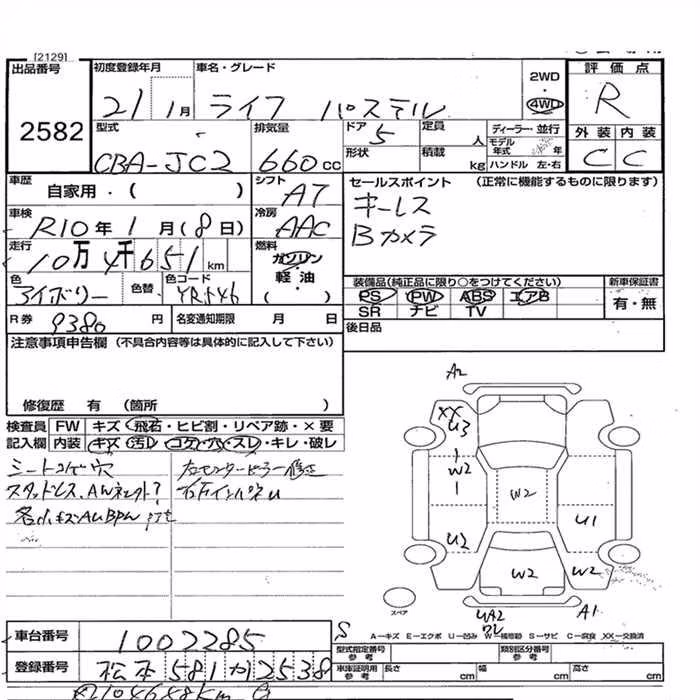 [2129]
出品番号
2582
初度登録年月
21 1月
車名・グレード
ライフ パステル
2WD
4WD
評価点
R
型式
CBA-JC2
排気量
660cc
ドア
5
定員
人
形状
積載
kg
ディーラー・並行
モデル年式
年
ハンドル 左・右
外装 内装
C C
車歴
自家用・( )
シフト
A7
セールスポイント (正常に機能するものに限ります)
キーレス
Bカメラ
車検
R10年1月(8日)
冷房
AAC
走行
10万4千651km
燃料
ガソリン
軽油
( )
色
アイボリー
色替
色コード
YR546
装備品(純正品に限り○をつけてください)
PS PW ABS エアB
SR ナビ TV
新車保証書
有・無
R券 9380円
名変通知期限 月 日
後日品
注意事項申告欄 (不具合内容等は具体的に記入して下さい)
修復歴 有 (箇所 )
検査員記入欄
FW キズ・飛石・ヒビ割・リペア跡・×要
内装 キズ・汚レ・コゲ・穴・スレ・キレ・破レ
シートコゲ穴
スタッドレス、AW
左センターピラー修正
A2
XX
U3
W2
U2
W2
U1
W2
W2
A1
スペア
A-キズ E-エクボ U-凹み W-補修跡 S-サビ C-腐食 XX-交換済
S
車台番号
1002285
型式指定番号
参考
類別区分番号
参考
登録番号
松本581か2538
車体証明用
参考
長さ cm
幅 cm
高さ cm